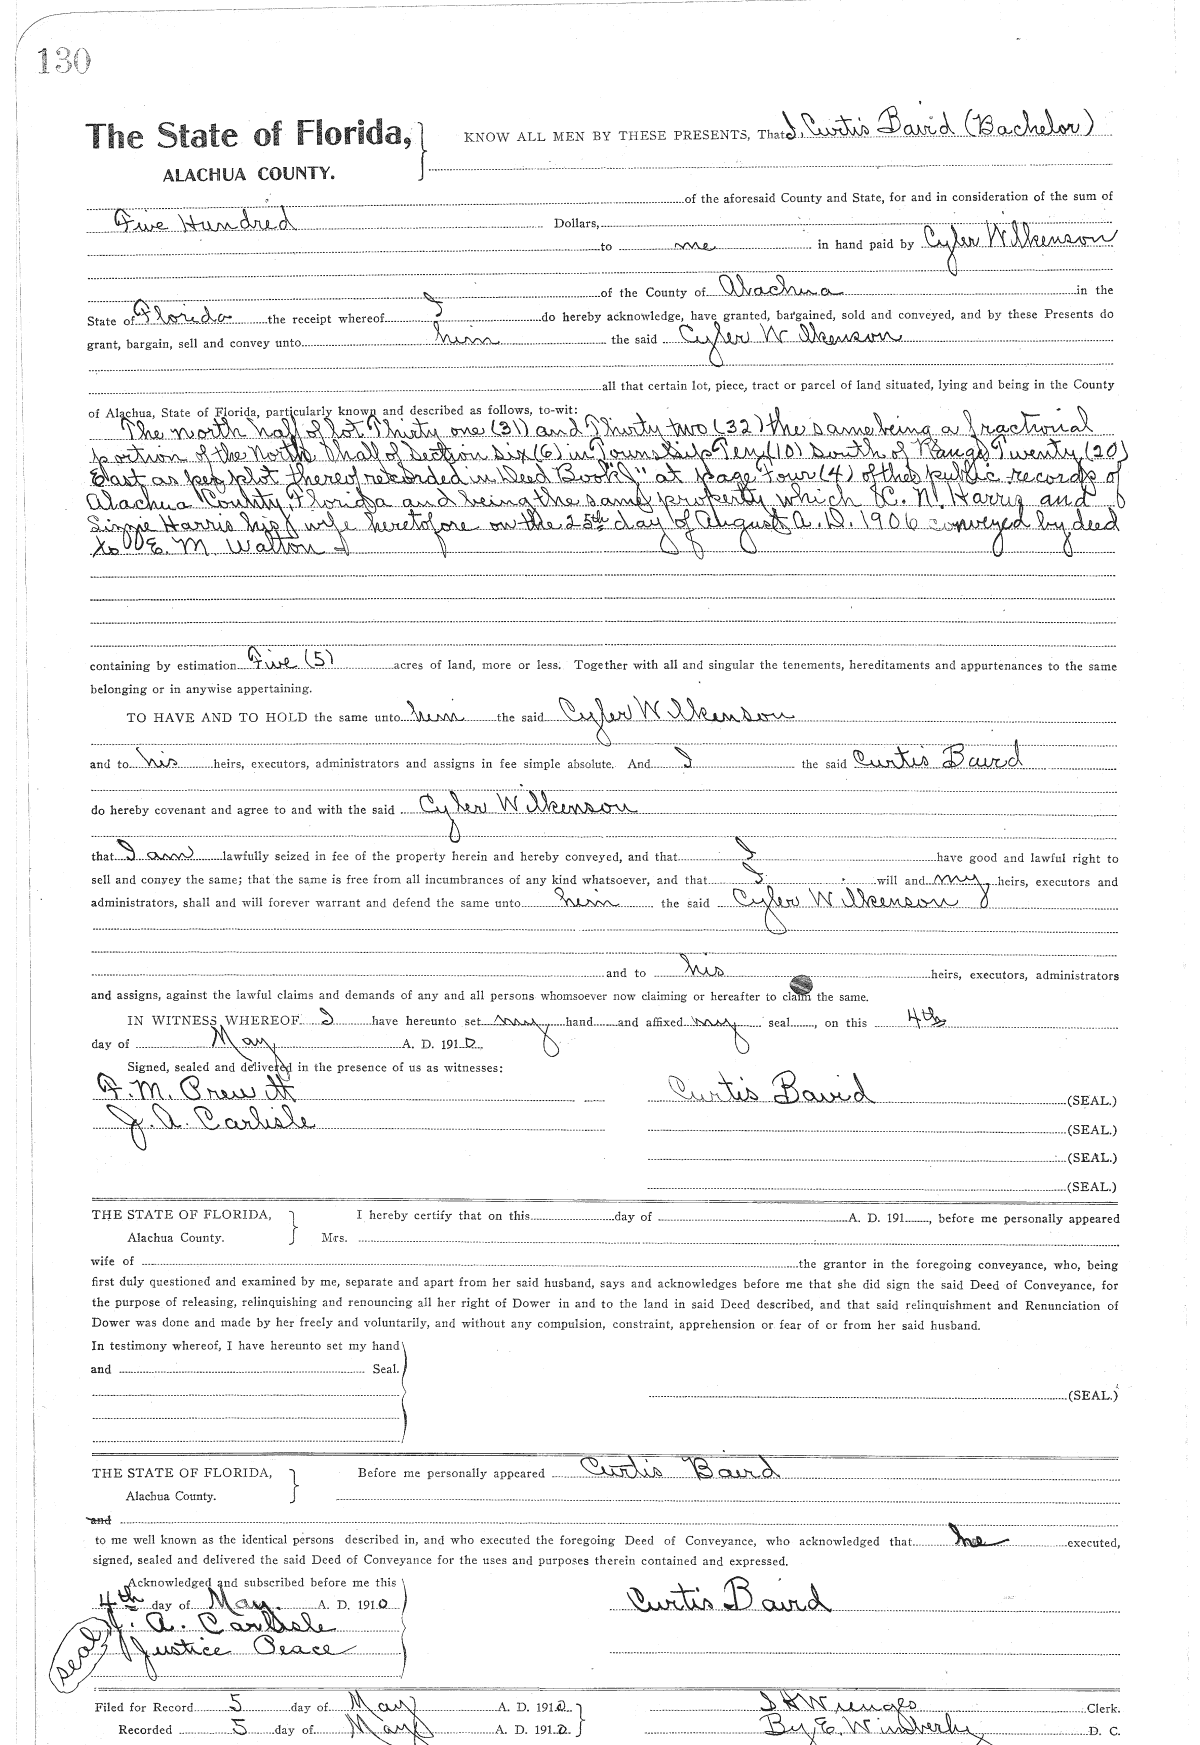 130
The State of Florida, KNOW ALL MEN BY THESE PRESENTS, That I, Curtis Baird (Bachelor)
ALACHUA COUNTY.
of the aforesaid County and State, for and in consideration of the sum of
Five Hundred Dollars,
to me in hand paid by Cyler Wilkenson
of the County of Alachua in the
State of Florida the receipt whereof I do hereby acknowledge, have granted, bargained, sold and conveyed, and by these Presents do
grant, bargain, sell and convey unto him the said Cyler Wilkenson
all that certain lot, piece, tract or parcel of land situated, lying and being in the County
of Alachua, State of Florida, particularly known and described as follows, to-wit:
The north half of lot Thirty one (31) and Thirty two (32) the same being a fractional
portion of the North half of Section six (6) in Township Ten (10) South of Range Twenty (20)
East as per plot thereof recorded in Deed Book at page Four (4) of the public records of
Alachua County, Florida and being the same property which C. N. Harris and
Harris his wife heretofore on the 25th day of August A. D. 1906 conveyed by deed
to E. M. Walton
containing by estimation Five (5) acres of land, more or less. Together with all and singular the tenements, hereditaments and appurtenances to the same
belonging or in anywise appertaining.
TO HAVE AND TO HOLD the same unto him the said Cyler Wilkenson
and to his heirs, executors, administrators and assigns in fee simple absolute. And I the said Curtis Baird
do hereby covenant and agree to and with the said Cyler Wilkenson
that I am lawfully seized in fee of the property herein and hereby conveyed, and that I have good and lawful right to
sell and convey the same; that the same is free from all incumbrances of any kind whatsoever, and that I will and my heirs, executors and
administrators, shall and will forever warrant and defend the same unto him the said Cyler Wilkenson
and to his heirs, executors, administrators
and assigns, against the lawful claims and demands of any and all persons whomsoever now claiming or hereafter to claim the same.
IN WITNESS WHEREOF I have hereunto set my hand and affixed my seal, on this 4th
day of May A. D. 1910
Signed, sealed and delivered in the presence of us as witnesses:
F. M. Prewitt Curtis Baird (SEAL.)
J. A. Carlisle (SEAL.)
(SEAL.)
(SEAL.)
THE STATE OF FLORIDA, I hereby certify that on this day of A. D. 191, before me personally appeared
Alachua County. Mrs.
wife of the grantor in the foregoing conveyance, who, being
first duly questioned and examined by me, separate and apart from her said husband, says and acknowledges before me that she did sign the said Deed of Conveyance, for
the purpose of releasing, relinquishing and renouncing all her right of Dower in and to the land in said Deed described, and that said relinquishment and Renunciation of
Dower was done and made by her freely and voluntarily, and without any compulsion, constraint, apprehension or fear of or from her said husband.
In testimony whereof, I have hereunto set my hand
and Seal.
(SEAL.)
THE STATE OF FLORIDA, Before me personally appeared Curtis Baird
Alachua County.
and
to me well known as the identical persons described in, and who executed the foregoing Deed of Conveyance, who acknowledged that he executed,
signed, sealed and delivered the said Deed of Conveyance for the uses and purposes therein contained and expressed.
Acknowledged and subscribed before me this
4th day of May. A. D. 1910 Curtis Baird
J. A. Carlisle
seal Justice Peace
Filed for Record 5 day of May A. D. 1910 S H Wienges Clerk.
Recorded 5 day of May A. D. 1910. By E. Wimberly D. C.